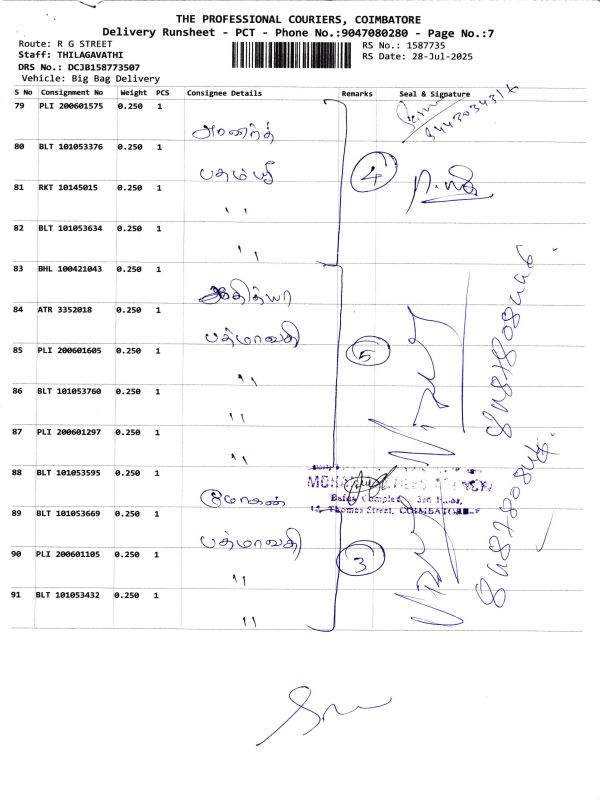 THE PROFESSIONAL COURIERS, COIMBATORE
Delivery Runsheet - PCT - Phone No.:9047080280 - Page No.:7
Route: R G STREET
RS No.: 1587735
Staff: THILAGAVATHI
RS Date: 28-Jul-2025
DRS No.: DCJB158773507
Vehicle: Big Bag Delivery
S No Consignment No Weight PCS Consignee Details Remarks Seal & Signature
79 PLI 200601575 0.250 1
80 BLT 101053376 0.250 1
4
81 RKT 10145015 0.250 1 ''
82 BLT 101053634 0.250 1 ''
83 BHL 100421043 0.250 1 ஆதித்யா
84 ATR 3352018 0.250 1 பத்மாவதி
5
85 PLI 200601605 0.250 1 ''
86 BLT 101053760 0.250 1 ''
87 PLI 200601297 0.250 1 ''
88 BLT 101053595 0.250 1 மோகன்
Thomas Street, COIMBATORE
89 BLT 101053669 0.250 1 பத்மாவதி
3
90 PLI 200601105 0.250 1 ''
91 BLT 101053432 0.250 1 ''